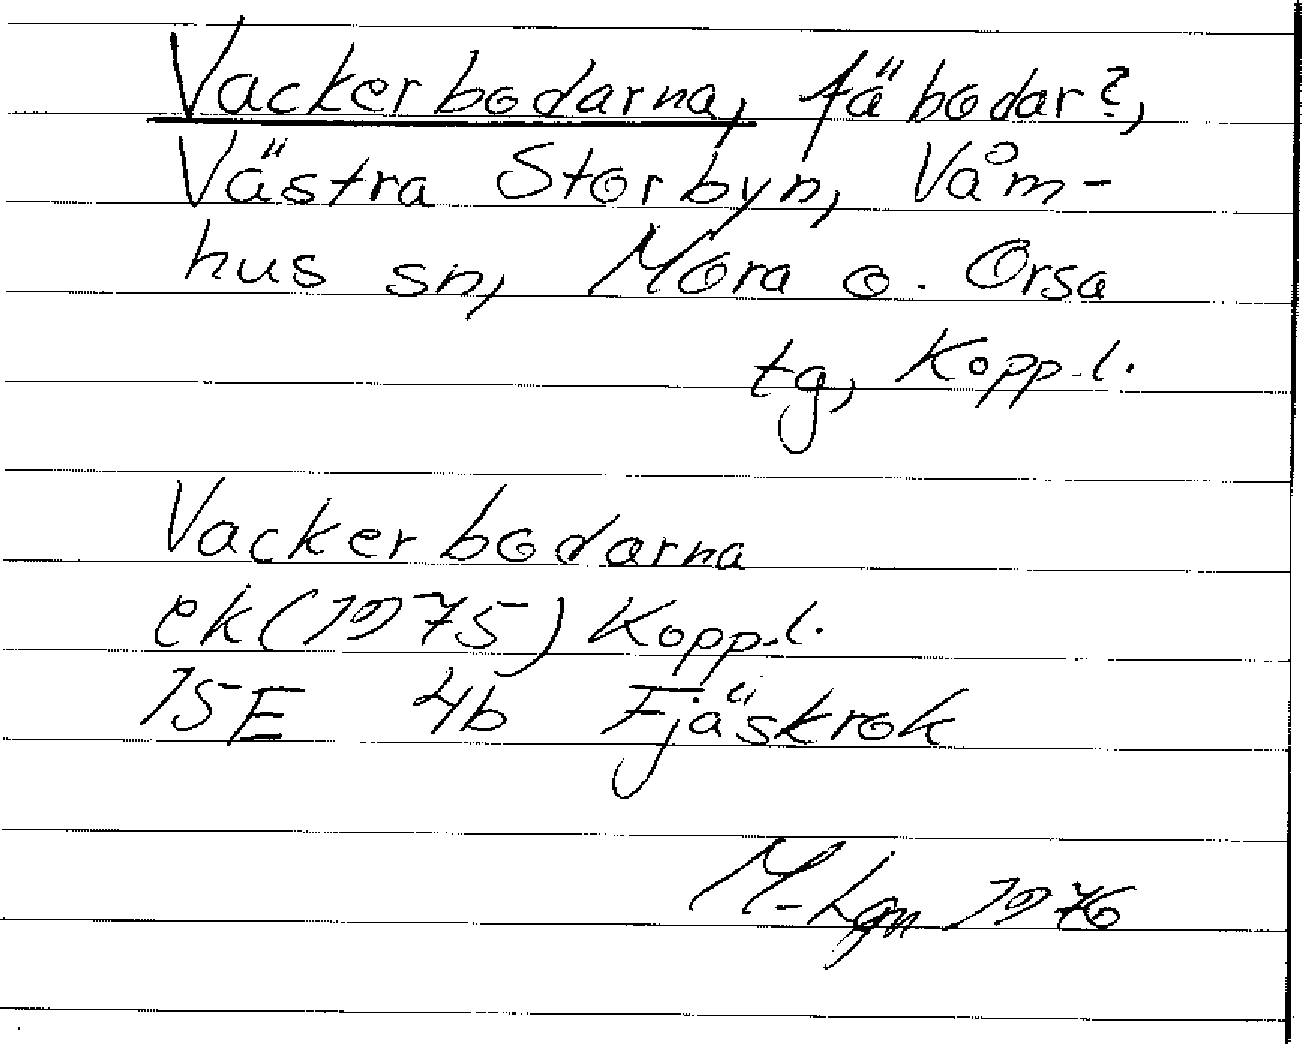 Vackerbodarna, fäbodar?,
Västra Storbyn, Våm-
hus sn, Mora o. Orsa
tg, Kopp.l.
Vackerbodarna
ek(1975) Kopp.l.
15E 4b Fjäskrok
M-Lgn 1976